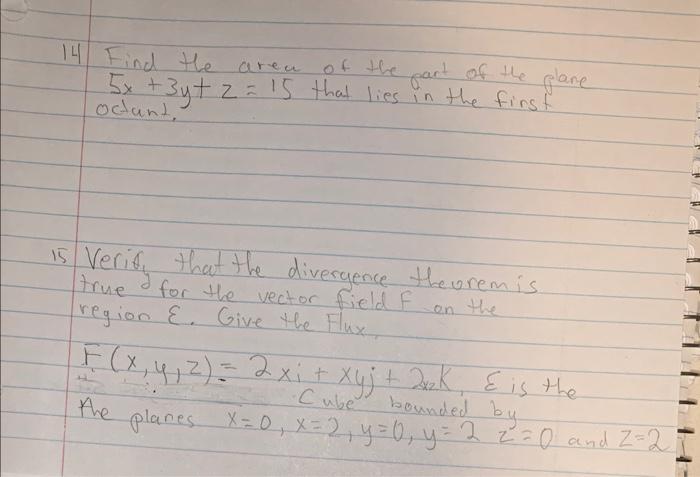 14 Find the area of the part of the plane
5x + 3y + z = 15 that lies in the first
octant.
15 Verify that the divergence theorem is
true for the vector field F on the
region E. Give the Flux.
F(x, y, z) = 2xi + xyj + 2xzk, E is the
Cube bounded by
the planes x=0, x=2, y=0, y=2 z=0 and z=2